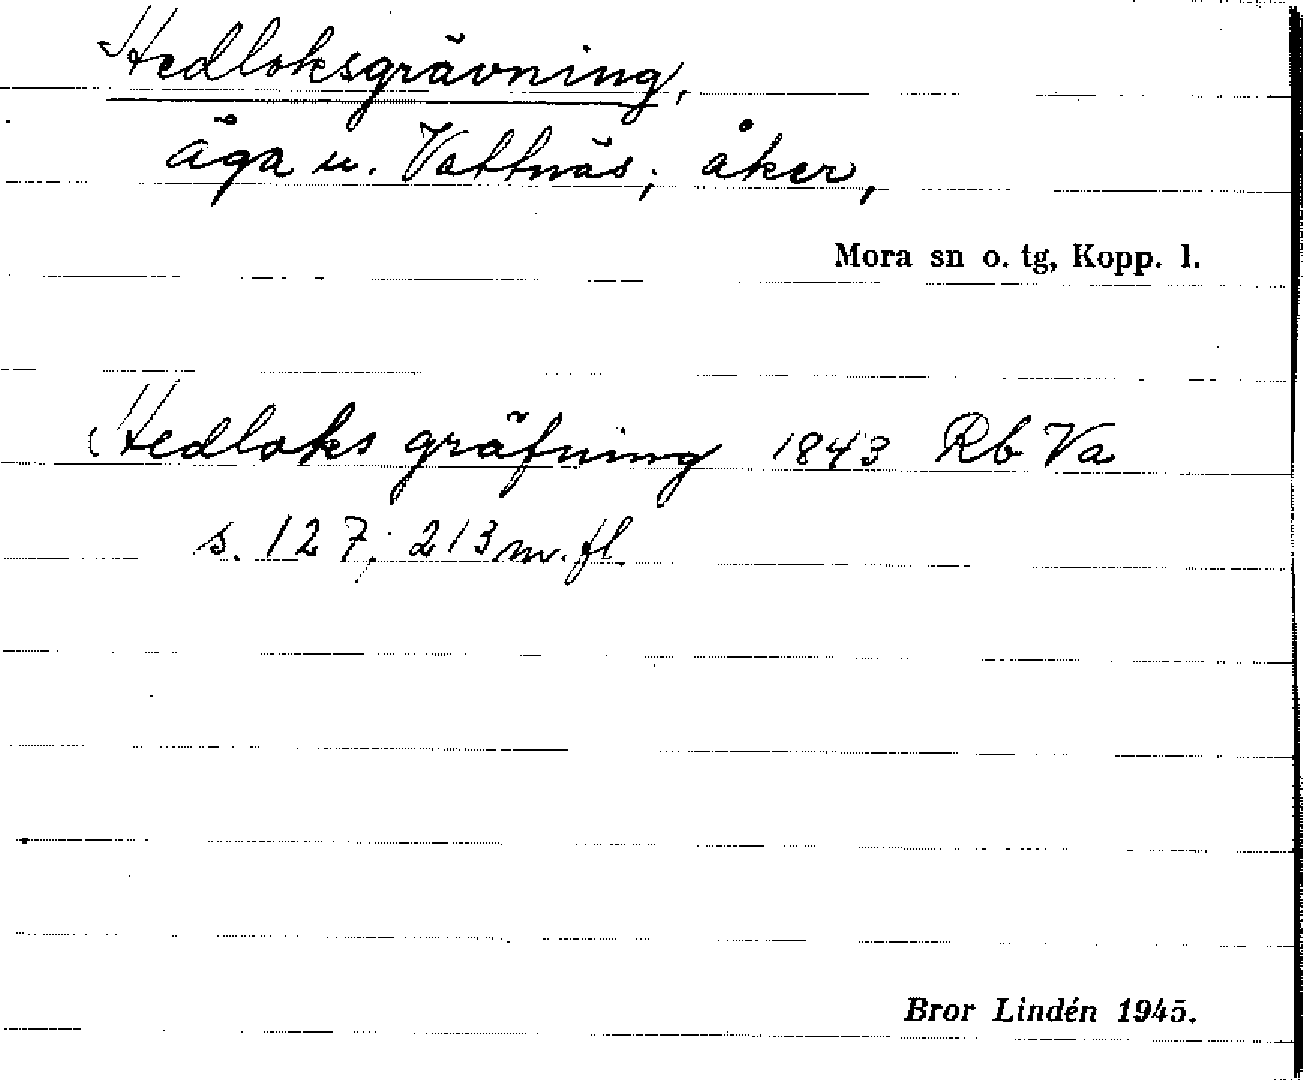 Hedloksgrävning,
äga u. Vattnäs; åker,
Mora sn o. tg, Kopp. l.
Hedloks gräfning 1843 Rb Va
s. 127; 213 m. fl.
Bror Lindén 1945.